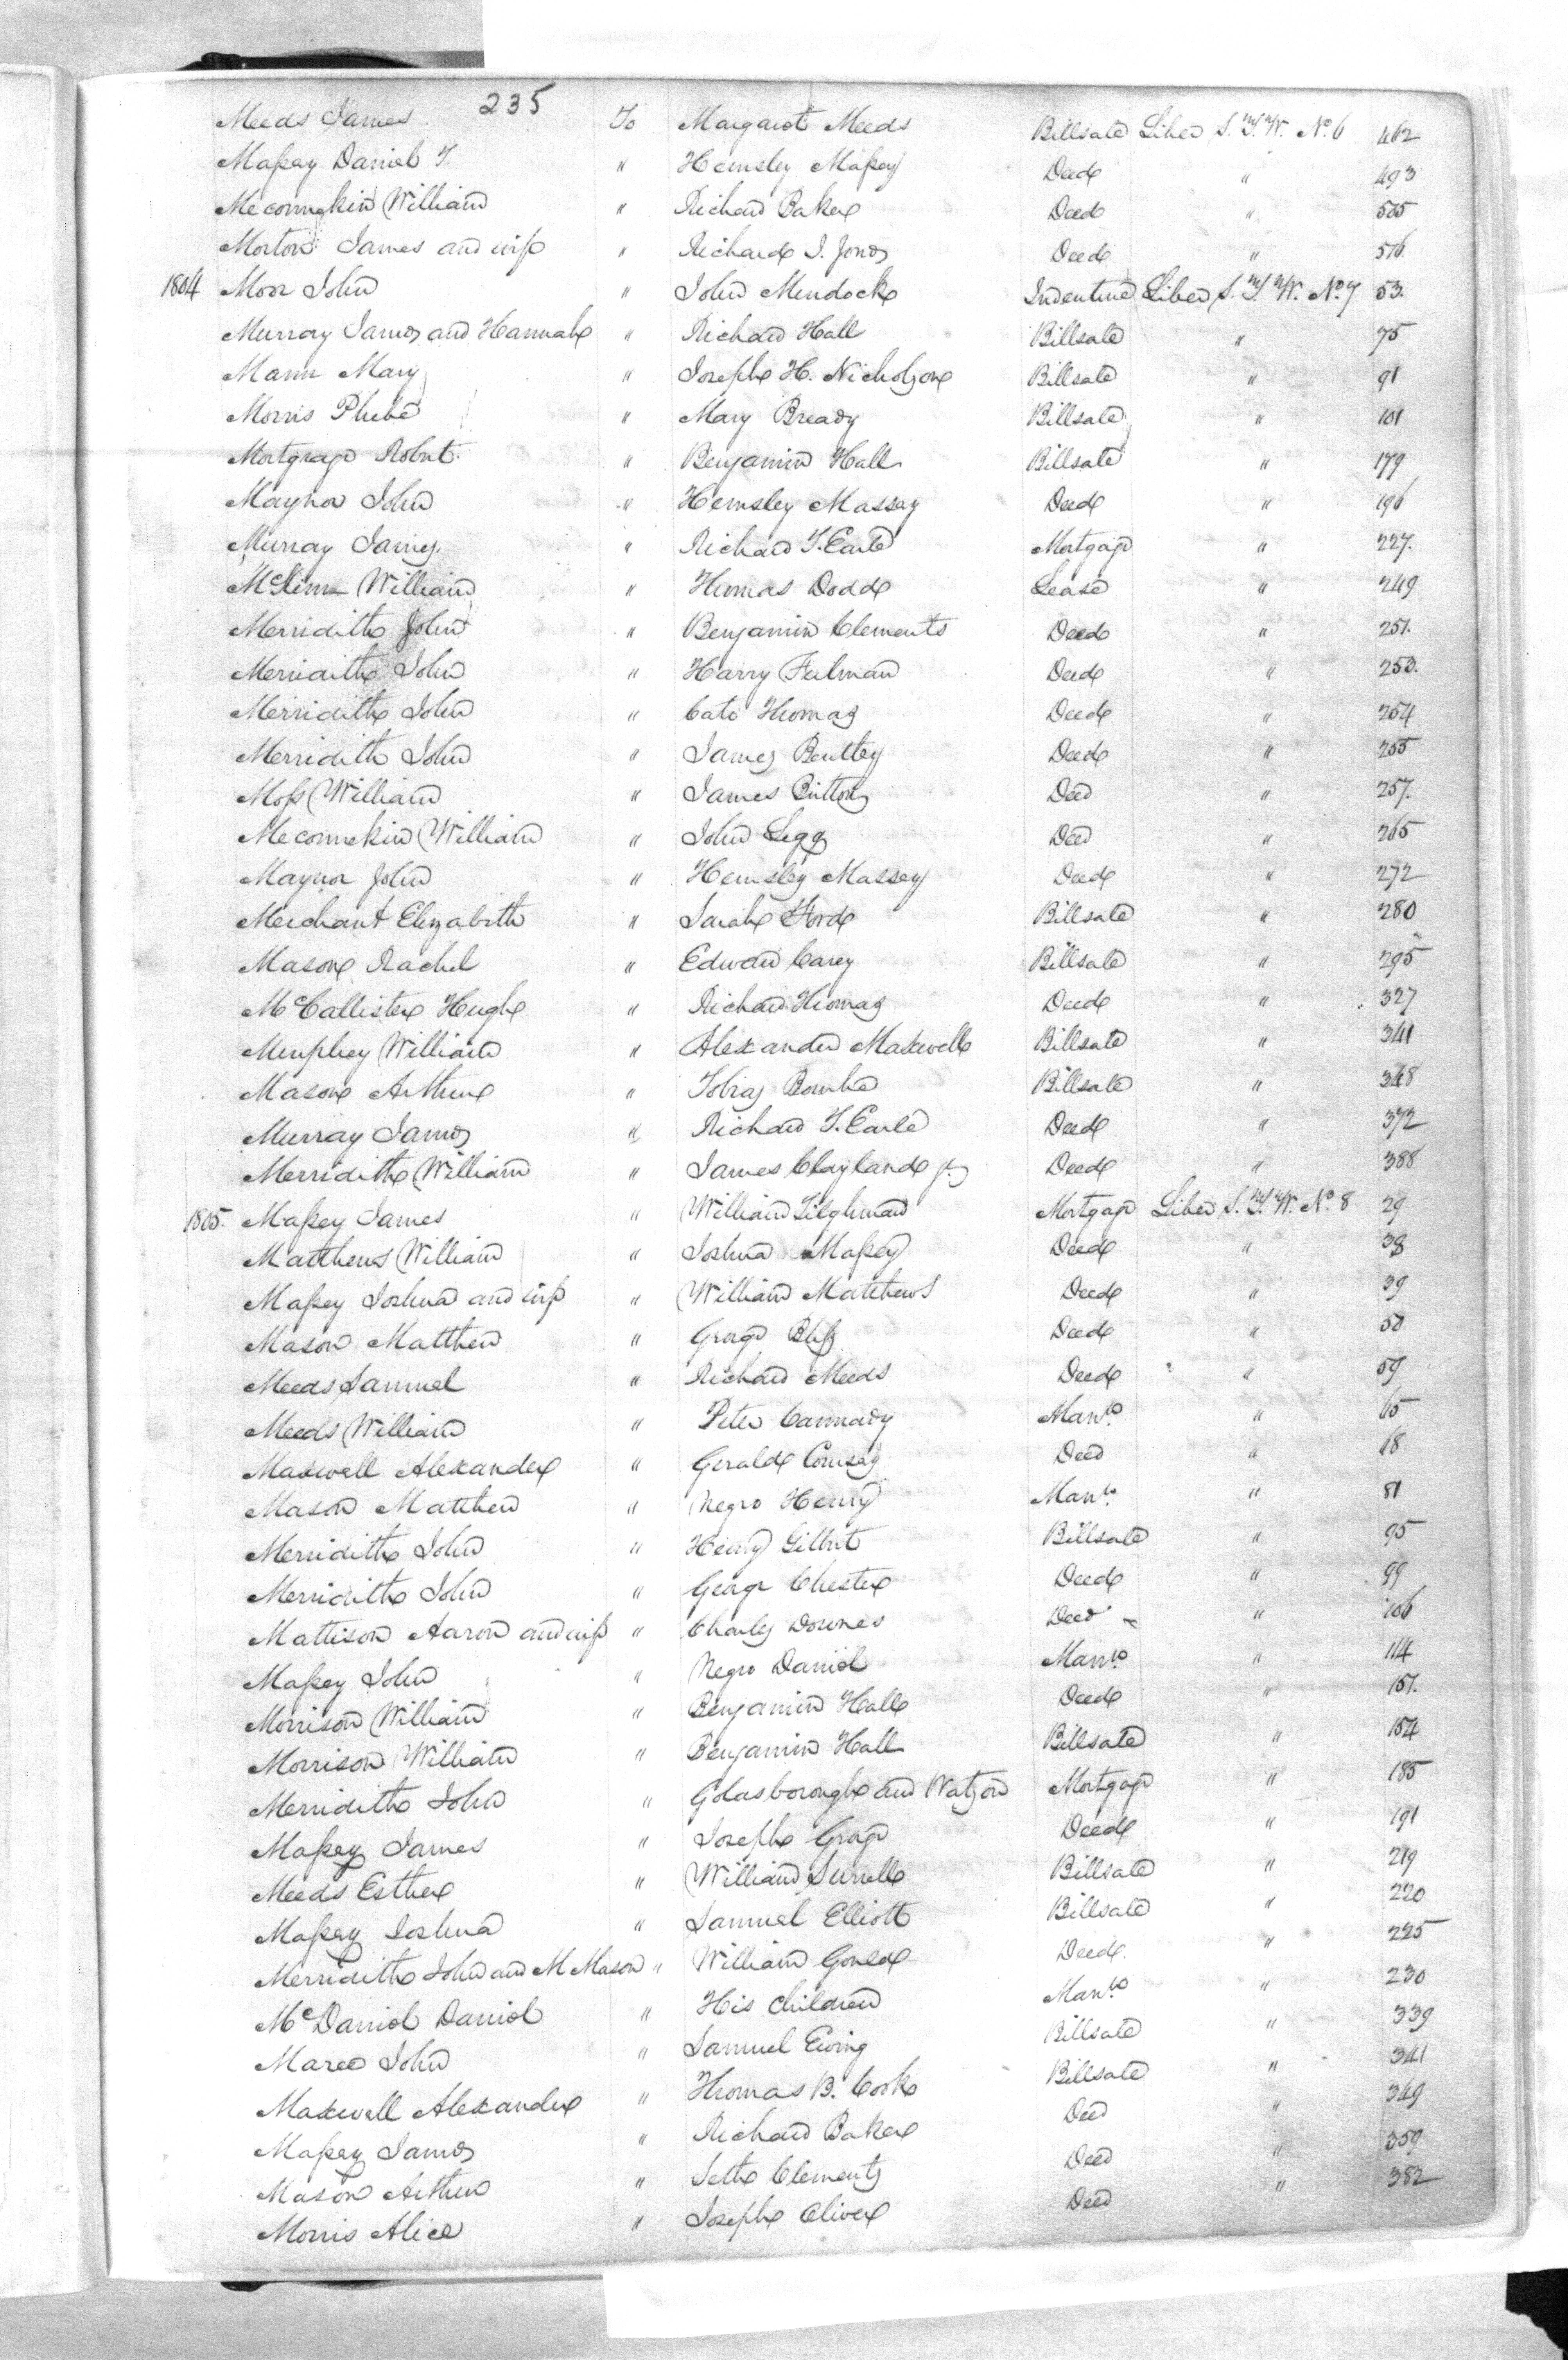 235
Meeds James To Margaret Meeds Billsale Liber S.T.W. No. 6 462
Massey Daniel T. " Hemsley Massey Deed " 493
Meconnekin William " Richard Baker Deed " 505
Morton James and wife " Richard I. Jones Deed " 516
1804 Moor John " John Mendock Indenture Liber S.T.W. No. 7 53.
Murray James and Hannah " Richard Hall Billsale " 75
Mann Mary " Joseph H. Nicholson Billsale " 91
Morris Phebe " Mary Bready Billsale " 101
Mortgrage Robert " Benjamin Hall Billsale " 179
Maynor John " Hemsley Massey Deed " 196
Murray James " Richard T. Earle Mortgage " 227.
McKim William " Thomas Dodd Lease " 249
Merridith John " Benjamin Clements Deed " 251.
Merridith John " Harry Fulman Deed " 253.
Merridith John " Cato Thomas Deed " 254
Merridith John " James Bentley Deed " 255
Moss William " James Britton Deed " 257.
Meconnekin William " John Legg Deed " 265
Maynor John " Hemsley Massey Deed " 272
Merchant Elizabeth " Sarah Ford Billsale " 280
Mason Rachel " Edward Carey Billsale " 295
McCallister Hugh " Richard Thomas Deed " 327
Murphey William " Alexander Maxwell Billsale " 341
Mason Arthur " Tobias Bourke Billsale " 348
Murray James " Richard T. Earle Deed " 372
Merridith William " James Clayland jr. Deed " 388
1805. Massey James " William Tilghman Mortgage Liber S.T.W. No. 8 29
Matthews William " Joshua Massey Deed " 38
Massey Joshua and wife " William Matthews Deed " 39
Mason Matthew " George Bliss Deed " 50
Meeds Samuel " Richard Meeds Deed " 59
Meeds William " Peter Cannady Mann. " 65
Maxwell Alexander " Gerald Coursey Deed " 68
Mason Matthew " Negro Henry Mann. " 81
Merridith John " Henry Gilbert Billsale " 95
Merridith John " George Chester Deed " 99
Mattison Aaron and wife " Charles Downes Deed " 106
Massey John " Negro Daniel Mann. " 114
Morrison William " Benjamin Hall Deed " 151.
Morrison William " Benjamin Hall Billsale " 154
Merridith John " Goldsborough and Watson Mortgage " 185
Massey James " Joseph George Deed " 191
Meeds Esther " William Surrell Billsale " 219
Massey Joshua " Samuel Elliott Billsale " 220
Merridith John and M Mason " William Gould Deed " 225
McDaniel Daniel " His Children Mann. " 230
Maree John " Samuel Ewing Billsale " 339
Maxwell Alexander " Thomas B. Cook Billsale " 341
Massey James " Richard Baker Deed " 349
Mason Arthur " Seth Clements Deed " 359
Morris Alice " Joseph Oliver Deed " 382